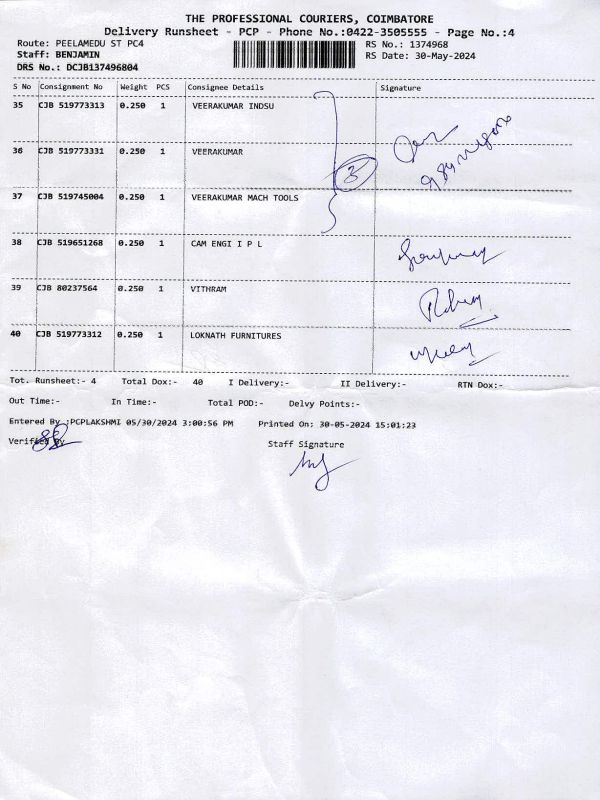 THE PROFESSIONAL COURIERS, COIMBATORE
Delivery Runsheet - PCP - Phone No.:0422-3505555 - Page No.:4
Route: PEELAMEDU ST PC4 RS No.: 1374968
Staff: BENJAMIN RS Date: 30-May-2024
DRS No.: DCJB137496804
S No Consignment No Weight PCS Consignee Details Signature
35 CJB 519773313 0.250 1 VEERAKUMAR INDSU
36 CJB 519773331 0.250 1 VEERAKUMAR
3
37 CJB 519745004 0.250 1 VEERAKUMAR MACH TOOLS
38 CJB 519651268 0.250 1 CAM ENGI I P L
39 CJB 80237564 0.250 1 VITHRAM
40 CJB 519773312 0.250 1 LOKNATH FURNITURES
Tot. Runsheet:- 4 Total Dox:- 40 I Delivery:- II Delivery:- RTN Dox:-
Out Time:- In Time:- Total POD:- Delvy Points:-
Entered By :PCPLAKSHMI 05/30/2024 3:00:56 PM Printed On: 30-05-2024 15:01:23
Verified By Staff Signature